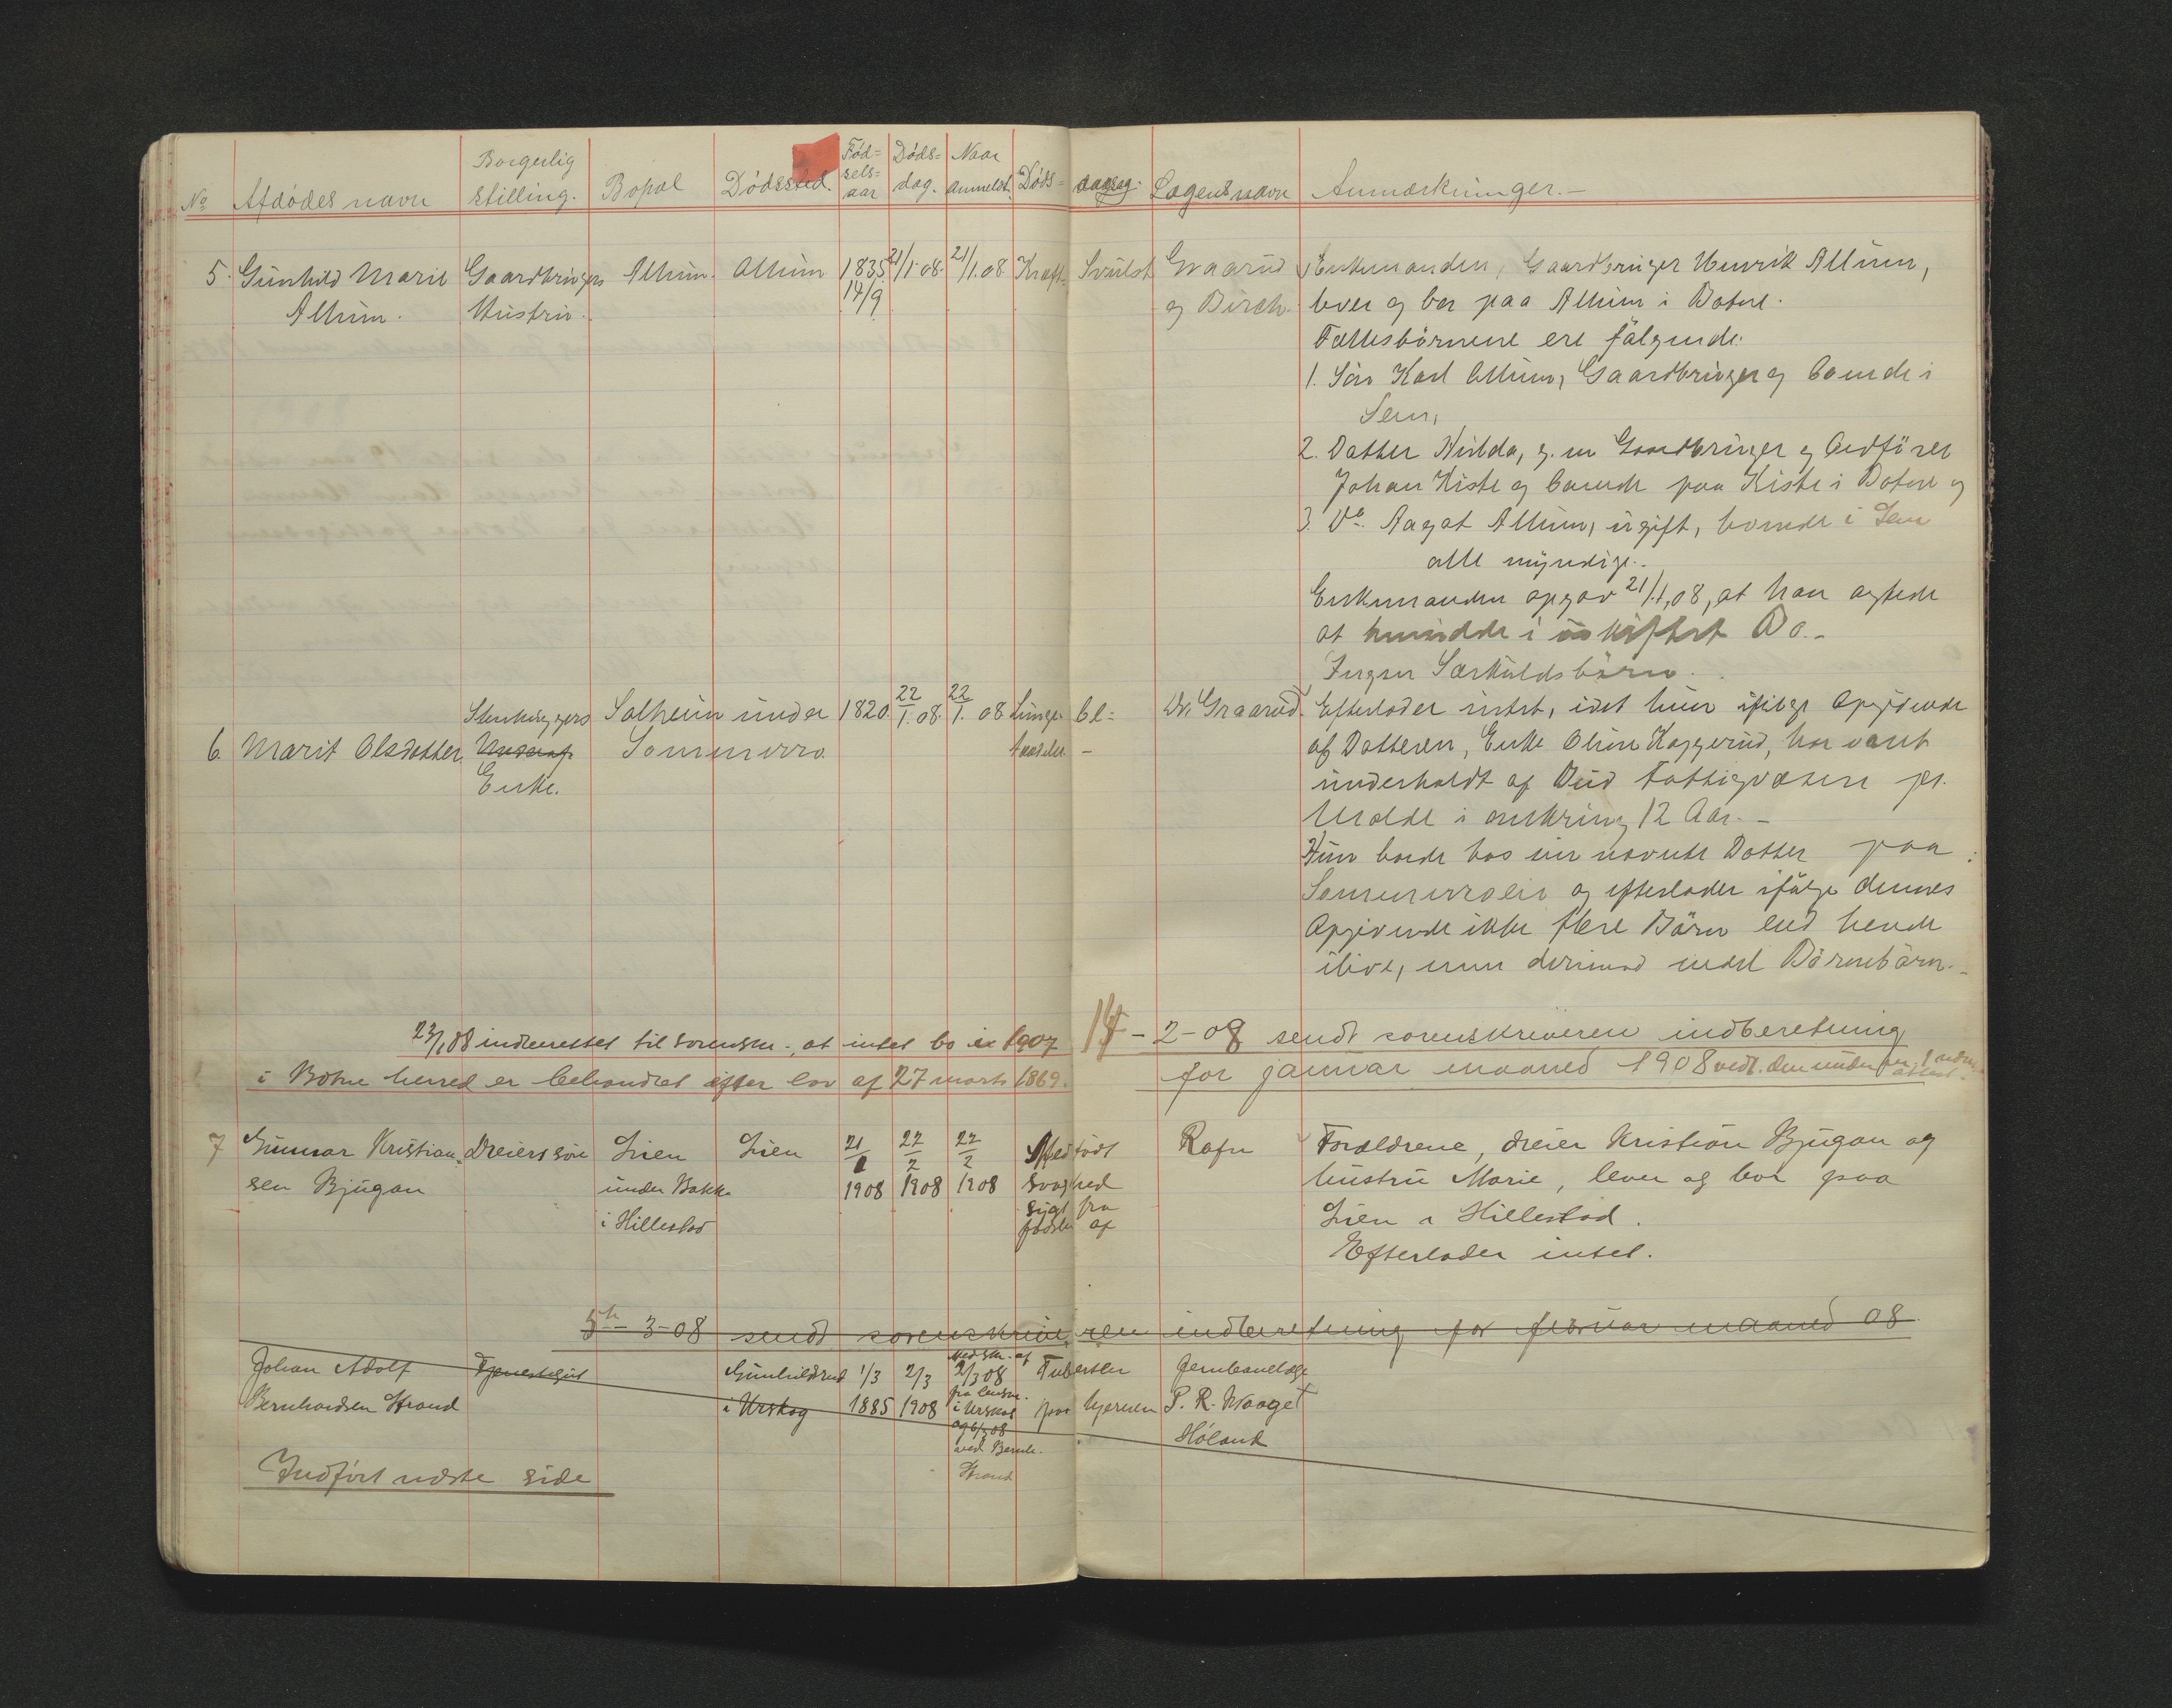 No Afdødes navn Borgerlig stilling. Bopæl Dødssted. Fød= sels= aar Døds= dag. Naar anmeldt. Døds= aarsag. Lægens navn Anmærkninger.-
5. Gunhild Marie Gaardbrugers Allum. Allum 1835 21/1.08. 21/1.08 Kræft= Svulst Graarud Enkemanden, Gaardbruger Henrik Allum,
Allum. Hustru. 14/9 og Birch. lever og bor paa Allum i Botne.
Fællesbørnene ere følgende:
1. Søn Karl Allum, Gaardbruger og boende i
Sem,
2. Datter Hilda, g. m Gaardbruger og
Johan Kiste og boende paa Kiste i Botne og
3. Do. Aagot Allum, ugift, boende i Sem
alle myndige.
Enkemanden opgav 21/1.08, at han agtede
at hensidde i uskiftet Bo.-
Ingen Særkuldsbørn.
6. Marit Olsdatter Enke. Solheim under Sommerro. 1820. 22/1.08. 22/1.08 Lunge= be= tændelse - Dr. Graarud. Efterlader intet, idet hun ifølge Opgivende
af Datteren, Enke Oline Kopperud, har været
underholdt af Fattigvæsen pr.
Molde i omkring 12 Aar.-
Hun boede hos sin nævnte Datter paa
og efterlader ifølge dennes
Opgivende ikke flere Børn end hende
ilive, men derimod endel Børnebørn.-
23/1 08 indberettet til sorenskr.-, at intet bo i 1907
i Botne herred er behandlet efter lov af 27 marts 1869.
14-2-08 sendt sorenskriveren indberetning
for januar maaned 1908 vedl.
7 Gunnar Kristian- Dreiers søn Lien Lien 21/1 22/2 22/2 Medfødt Rafn Forældrene, dreier Kristian Bjugan og
sen Bjugan under Bakke 1908 1908 1908 svaghed hustru Marie, lever og bor paa
i Hillestad sygt fra Lien i Hillestad.
fødsler af Efterlader intet.
5te-3-08 sendt sorenskriveren indberetning for februar maaned 08.
Johan Adolf Tjenestegut Gunhildrud 1/3 2/3 2/3 08 Tuberkler Jernbanelæge
Bernhardsen Strand i Urskog 1885 1908 fra lensm. i Urskog paa hjernen P. R. Krag
og 6/3 08 Høland
ved Bernh.
Strand
Indført næste side